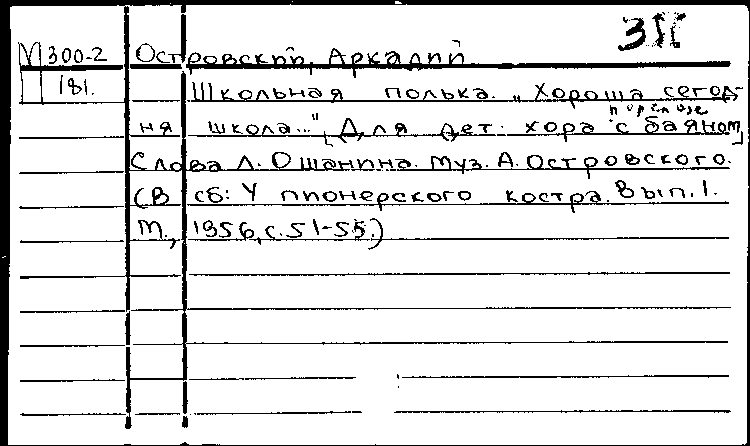 М300-2 Островский, Аркадий
181. Школьная полька. „Хороша сегод-
ня школа..." [Для дет. хора с баяном]
Слова Л. Ошанина. Муз. А. Островского.
(В сб: У пионерского костра. Вып. 1.
М., 1956, с. 51-55.)